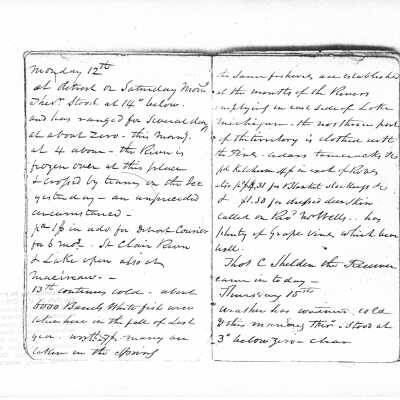 Monday 12th
at Detroit on Saturday Morn
Ther. Stood at 14° below.
and has ranged for several days
at about Zero - this Morng.
at 4 above - the River is
frozen over at this place
& crossed by teams on the Ice
yesterday - an unprecedented
circumstance -
in adv for Detroit Courier
for 6 mos. St Clair River
& Lake open also at
Macinaw. -
13th continues cold - about
6000 Barrels White fish were
taken here in the fall of Last
year. many are
taken in the Spring
fisheries are established
at the mouths of the Rivers
emptying in each side of Lake
Michigan - the northern part
of the territory is clothed with
the Pine - cedars tamaracks &c
pd for Blanket &c
& $1.50 for dressed deer skin
called on Revd Mr Wells. has
plenty of Grape vines which bear
well.
Thos C Sheldon the Receiver
came in today -
Thursday 15th
Weather has continued cold
& this morning Ther. Stood at
3° below zero - clear